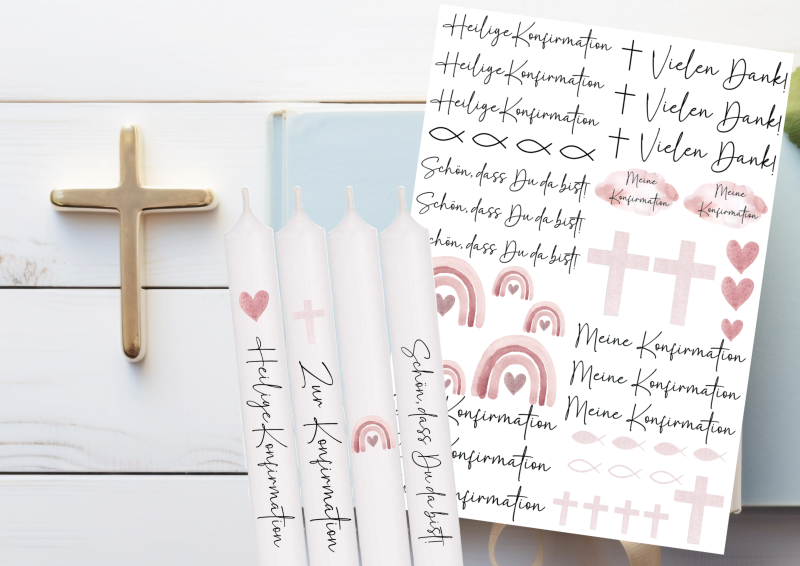 Heilige Konfirmation
Heilige Konfirmation
Heilige Konfirmation
Vielen Dank!
Vielen Dank!
Vielen Dank!
Schön, dass Du da bist!
Schön, dass Du da bist!
Schön, dass Du da bist!
Meine
Konfirmation
Meine
Konfirmation
Meine Konfirmation
Meine Konfirmation
Meine Konfirmation
Konfirmation
Konfirmation
Konfirmation
Heilige Konfirmation
Zur Konfirmation
Schön, dass Du da bist!